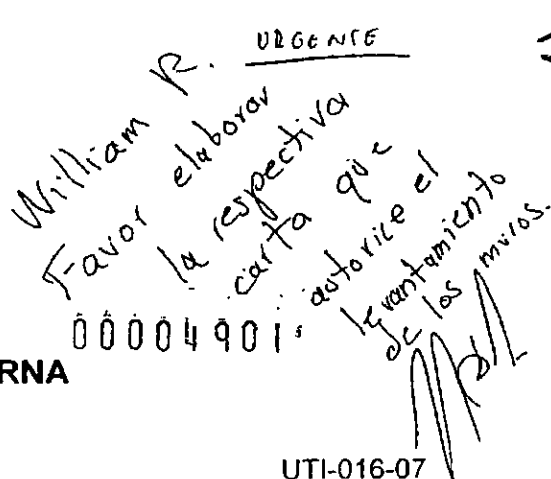 URGENTE
William R.
Favor elaborar
la respectiva
carta que
autorice el
levantamiento
de los muros.
00004901
RNA
UTI-016-07